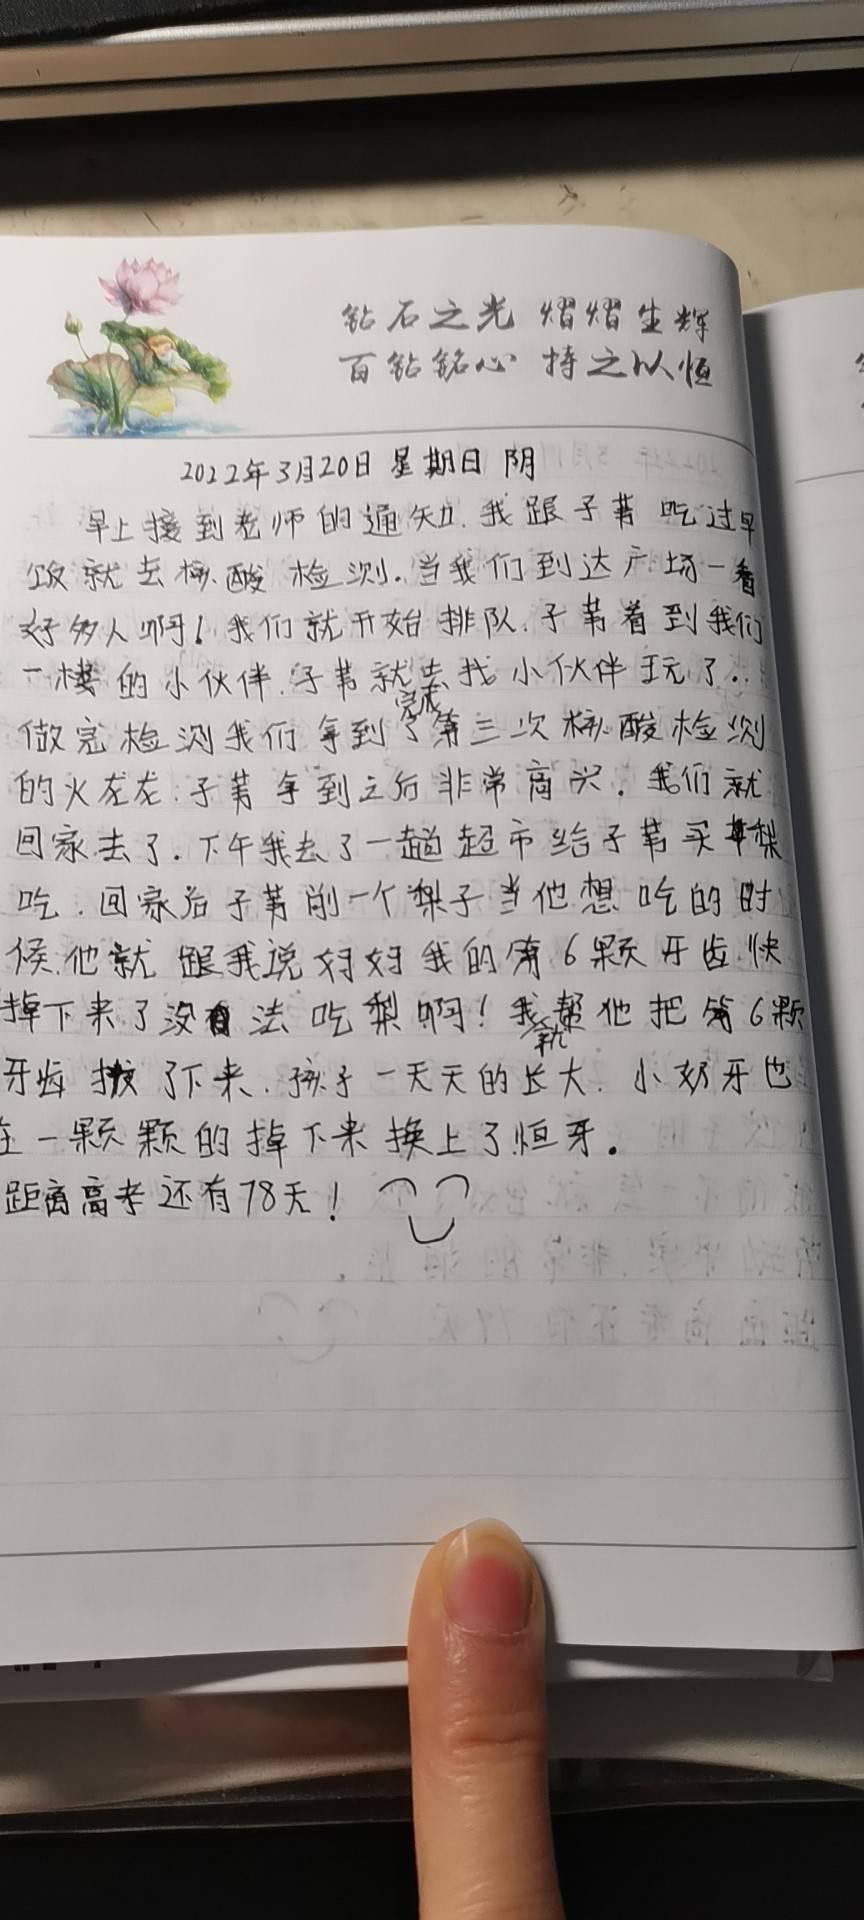 钻石之光 熠熠生辉
百钻铭心 持之以恒
2022年3月20日 星期日 阴
早上接到老师的通知.我跟子苇吃过早
饭就去核酸检测.当我们到达广场一看
好多人啊!我们就开始排队.子苇看到我们
一楼的小伙伴.子苇就去找小伙伴玩了..
做完检测我们拿到了完成第三次核酸检测
的火龙龙.子苇拿到之后非常高兴.我们就
回家去了.下午我去了一趟超市给子苇买梨
吃.回家后子苇削一个梨子当他想吃的时
候.他就跟我说妈妈我的第6颗牙齿快
掉下来了没有法吃梨啊!我就帮他把第6颗
牙齿拔了下来.孩子一天天的长大.小奶牙也
在一颗颗的掉下来换上了恒牙。
距离高考还有78天!